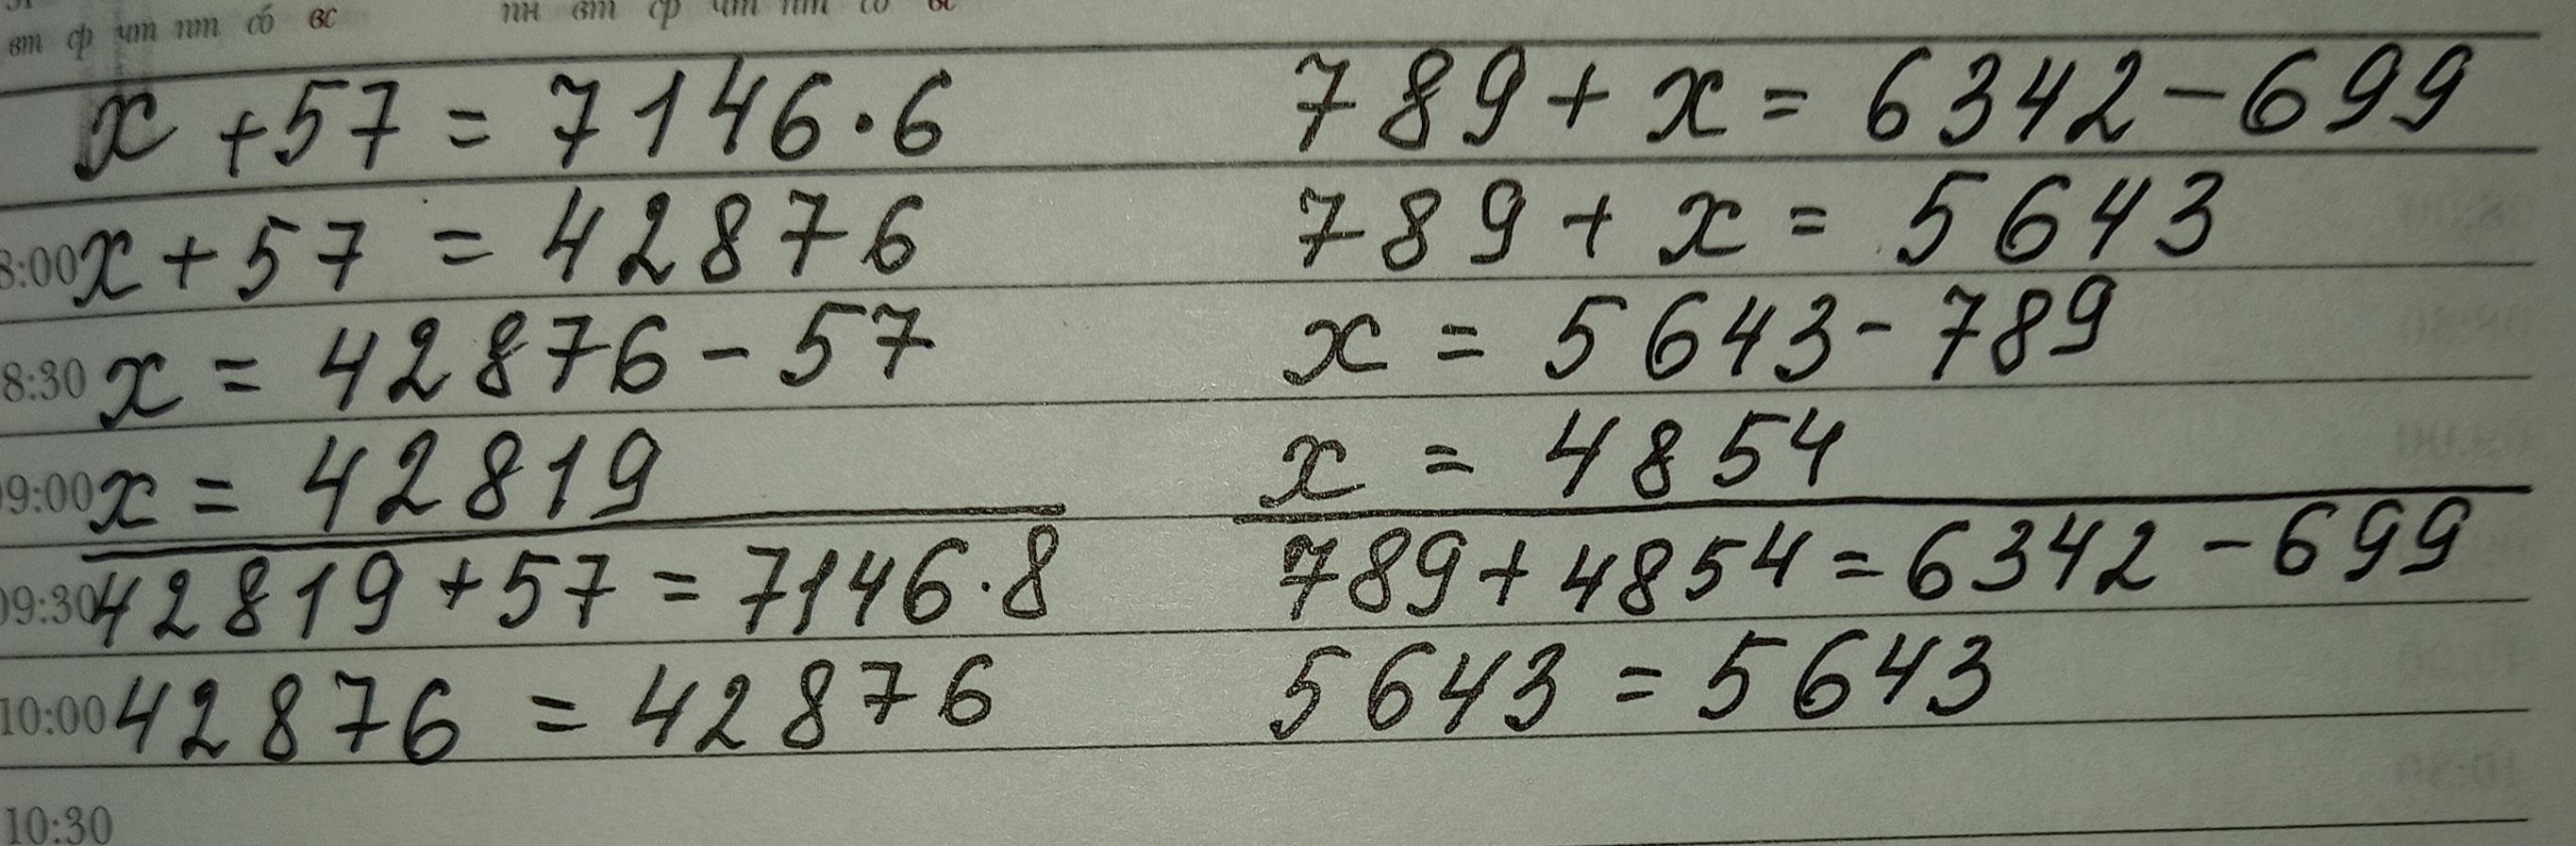 вт ср чт пт сб вс
пн вт ср чт пт сб вс
x + 57 = 7146 · 6
8:00 x + 57 = 42876
8:30 x = 42876 - 57
09:00 x = 42819
09:30 42819 + 57 = 7146 · 8
10:00 42876 = 42876
10:30
789 + x = 6342 - 699
789 + x = 5643
x = 5643 - 789
x = 4854
789 + 4854 = 6342 - 699
5643 = 5643